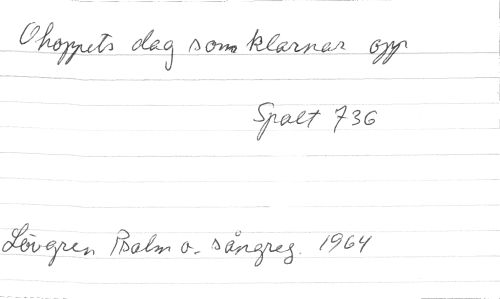 O hoppets dag som klarnar opp
Spalt 736
Lövgren Psalm o. sångreg. 1964